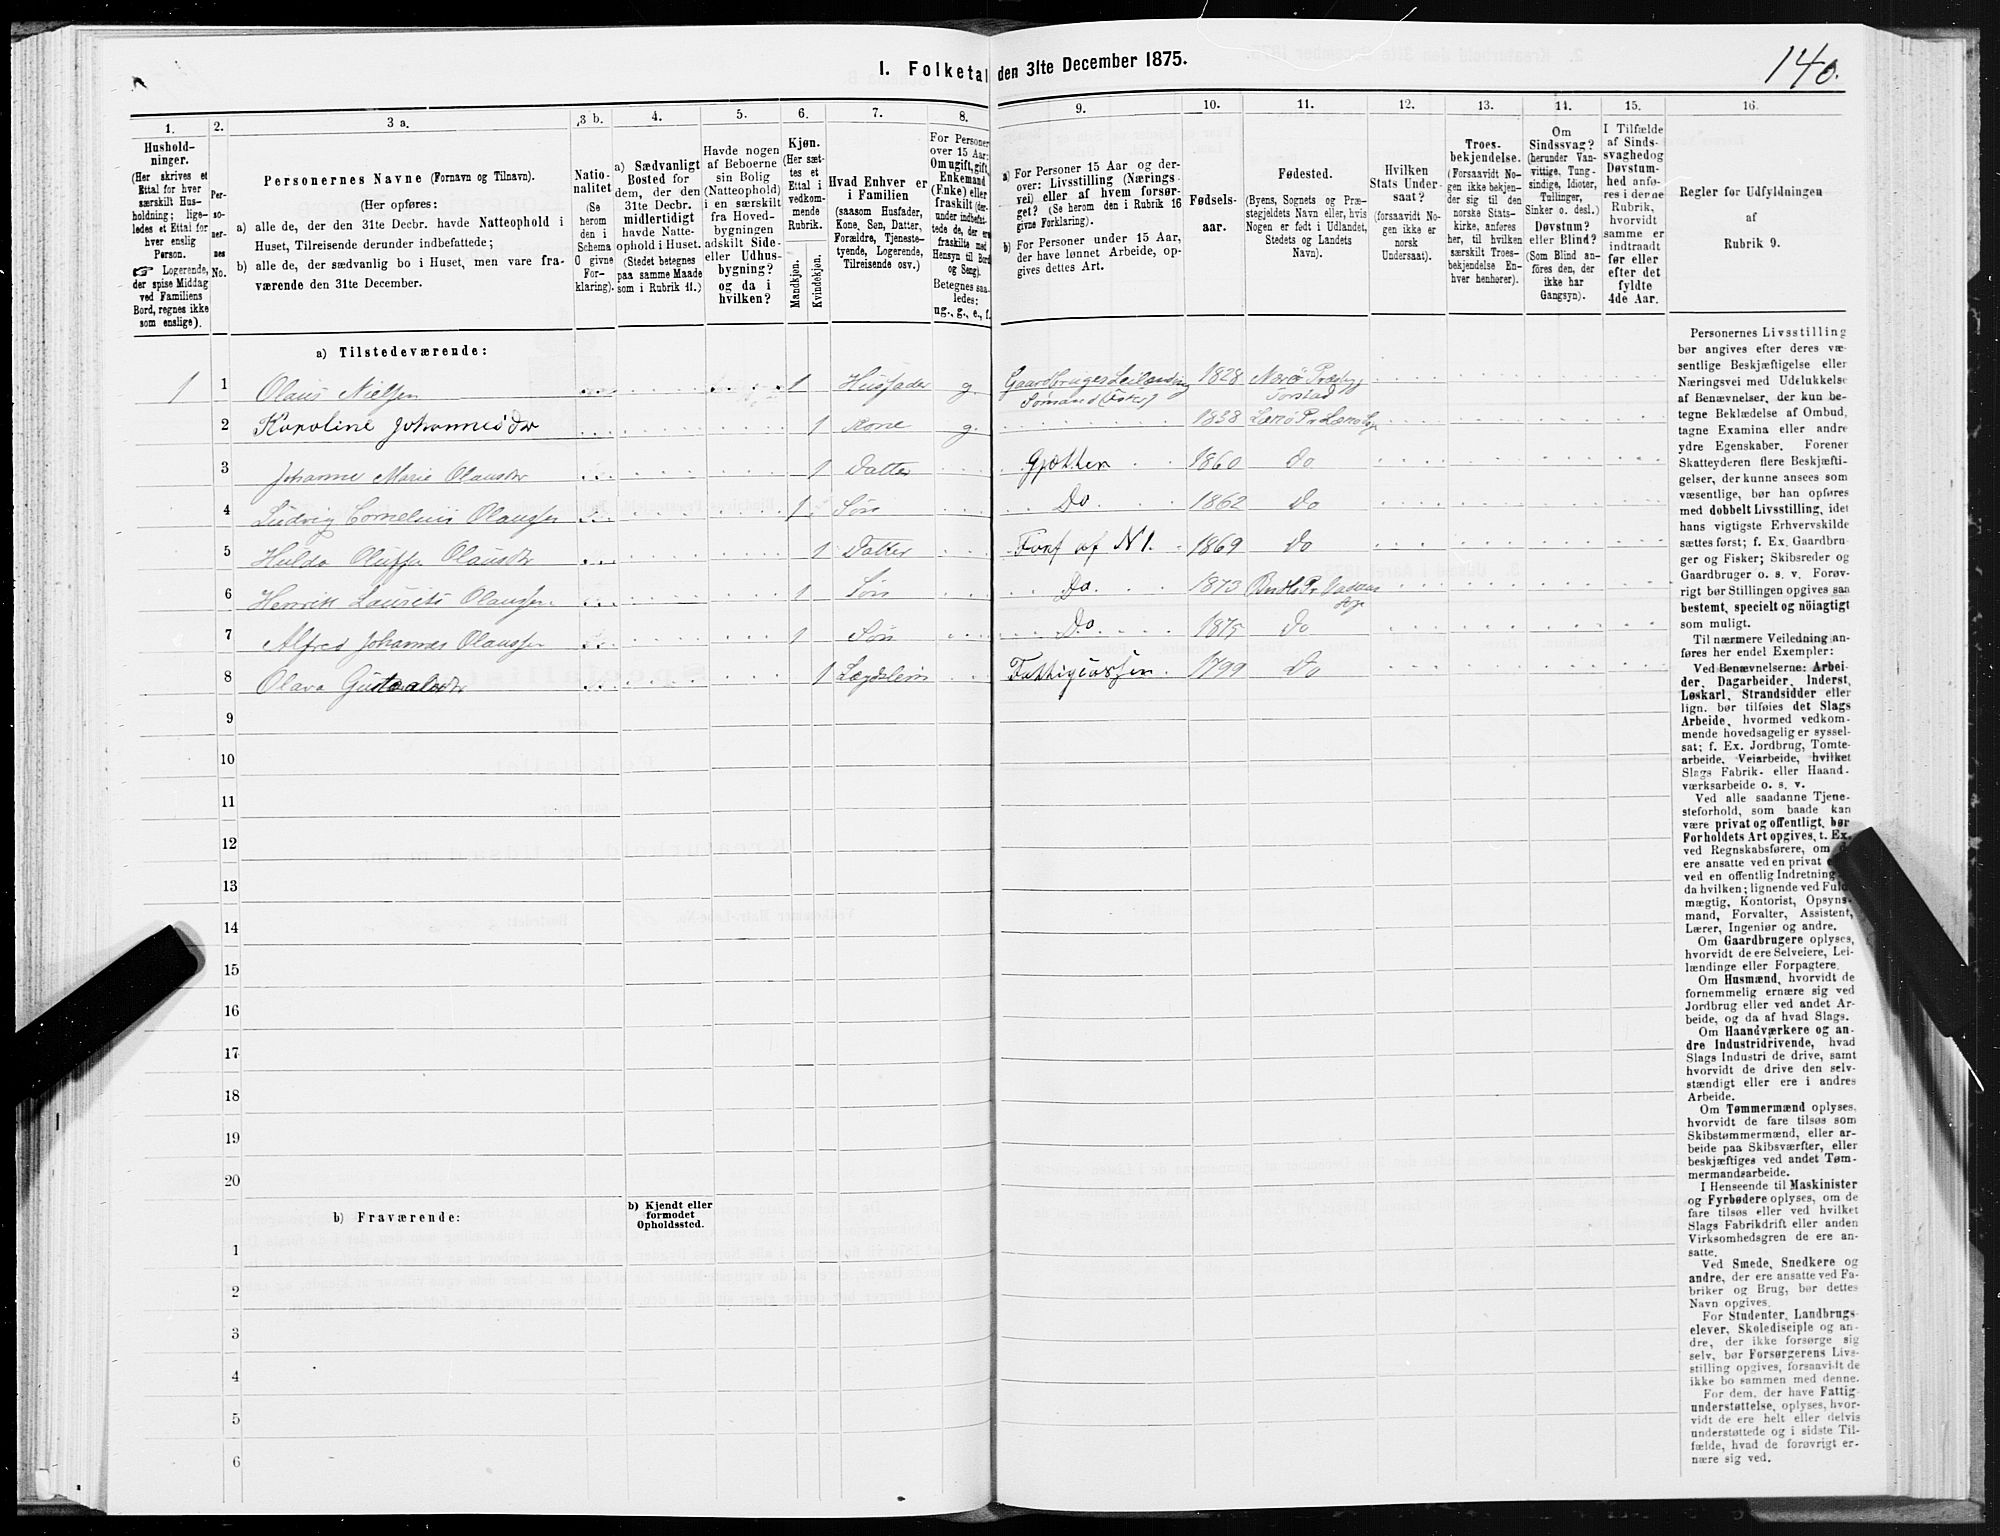 I. Folketal den 31te December 1875.
140.
1.
Hushold-
ninger.
(Her skrives et
Ettal for hver
særskilt Hus-
holdning; lige-
ledes et Ettal for
hver enslig
Person.
☞ Logerende,
der spise Middag
ved Familiens
Bord, regnes ikke
som enslige).
2.
Per-
so-
ner-
nes
No.
3 a.
Personernes Navne (Fornavn og Tilnavn).
(Her opføres:
a) alle de, der den 31te Decbr. havde Natteophold i
Huset, Tilreisende derunder indbefattede;
b) alle de, der sædvanlig bo i Huset, men vare fra-
værende den 31te December.
3 b.
Natio-
nalitet
(Se
herom
den i
Schema
O givne
For-
klaring).
4.
a) Sædvanligt
Bosted for
dem, der den
31te Decbr.
midlertidigt
havde Natte-
ophold i Huset.
(Stedet betegnes
paa samme Maade
som i Rubrik 11.)
5.
Havde nogen
af Beboerne
sin Bolig
(Natteophold)
i en særskilt
fra Hoved-
bygningen
adskilt Side-
eller Udhus-
bygning?
og da i
hvilken?
6.
Kjøn.
(Her sæt-
tes et
Ettal i
vedkom-
mende
Rubrik.
Mandkjøn.
Kvindekjøn.
7.
Hvad Enhver er
i Familien
(saasom Husfader,
Kone, Søn, Datter,
Forældre, Tjeneste-
tyende, Logerende,
Tilreisende osv.)
8.
For Personer
over 15 Aar:
Om ugift, gift,
Enkemand
(Enke) eller
fraskilt (der-
under indbefat-
tede de, der ere
fraskilte med
Hensyn til Bord
og Seng).
Betegnes saa-
ledes:
ug., g., e., f.
9.
a) For Personer 15 Aar og der-
over: Livsstilling (Nærings-
vei) eller af hvem forsør-
get? (Se herom den i Rubrik 16
givne Forklaring).
b) For Personer under 15 Aar,
der have lønnet Arbeide, op-
gives dettes Art.
10.
Fødsels-
aar.
11.
Fødested.
(Byens, Sognets og Præ-
stegjeldets Navn eller, hvis
Nogen er født i Udlandet,
Stedets og Landets
Navn).
12.
Hvilken
Stats Under-
saat?
(forsaavidt No-
gen ikke er
norsk
Undersaat).
13.
Troes-
bekjendelse.
(Forsaavidt No-
gen ikke bekjen-
der sig til den
norske Stats-
kirke, anføres
her, til hvilken
særskilt Troes-
bekjendelse En-
hver henhører).
14.
Om
Sindssvag?
(herunder Van-
vittige, Tung-
sindige, Idioter,
Tullinger,
Sinker o. desl.)
Døvstum?
eller Blind?
(Som Blind an-
føres den, der
ikke har
Gangsyn).
15.
I Tilfælde
af Sinds-
svaghed og
Døvstum-
hed anfø-
res i denne
Rubrik,
hvorvidt
samme er
indtraadt
før eller
efter det
fyldte
4de Aar.
16.
Regler for Udfyldningen
af
Rubrik 9.
a) Tilstedeværende:
1 1 Olaus Nielsen 1 Husfader g. Gaardbruger Leilænding 1828 Nærø Præstgj
Sømand
2 Karoline Johannesdr 1 Kone g. 1838
3 Johanne Marie Olausdr 1 Datter Gjætten 1860 Do
4 Ludvig Cornelius Olaussen 1 Søn Do 1862 Do
5 Hulda Olufine Olausdr 1 Datter Fors af N 1. 1869 Do
6 Henrik Laurits Olaussen 1 Søn Do 1873
7 Alfred Johannes Olaussen 1 Søn Do 1875 Do
8 Olava 1 Lægdslem 1799 Do
9
10
11
12
13
14
15
16
17
18
19
20
b) Fraværende:
b) Kjendt eller
formodet
Opholdssted.
1
2
3
4
5
6
Personernes Livsstilling
bør angives efter deres væ-
sentlige Beskjæftigelse eller
Næringsvei med Udelukkelse
af Benævnelser, der kun be-
tegne Beklædelse af Ombud,
tagne Examina eller andre
ydre Egenskaber. Forener
Skatteyderen flere Beskjæfti-
gelser, der kunne ansees som
væsentlige, bør han opføres
med dobbelt Livsstilling, idet
hans vigtigste Erhvervskilde
sættes først; f. Ex. Gaardbru-
ger og Fisker; Skibsreder og
Gaardbruger o. s. v. Forøv-
rigt bør Stillingen opgives saa
bestemt, specielt og nöiagtigt
som muligt.
Til nærmere Veiledning an-
føres her endel Exempler:
Ved Benævnelserne: Arbei-
der, Dagarbeider, Inderst,
Løskarl, Strandsidder eller
lign. bør tilføies det Slags
Arbeide, hvormed vedkom-
mende hovedsagelig er syssel-
sat; f. Ex. Jordbrug, Tomte-
arbeide, Veiarbeide, hvilket
Slags Fabrik- eller Haand-
værksarbeide o. s. v.
Ved alle saadanne Tjene-
steforhold, som baade kan
være privat og offentligt, bør
Forholdets Art opgives, t. Ex.
ved Regnskabsførere, om
ere ansatte ved en privat
ved en offentlig Indretning
da hvilken; lignende ved Fuld-
mægtig, Kontorist, Opsyns-
mand, Forvalter, Assistent,
Lærer, Ingeniør og andre.
Om Gaardbrugere oplyses,
hvorvidt de ere Selveiere, Lei-
lændinge eller Forpagtere.
Om Husmænd, hvorvidt de
fornemmelig ernære sig ved
Jordbrug eller ved andet Ar-
beide, og da af hvad Slags.
Om Haandværkere og an-
dre Industridrivende, hvad
Slags Industri de drive, samt
hvorvidt de drive den selv-
stændigt eller ere i andres
Arbeide.
Om Tømmermænd oplyses,
hvorvidt de fare tilsøs som
Skibstømmermænd, eller ar-
beide paa Skibsværfter, eller
beskjæftiges ved andet Tøm-
mermandsarbeide.
I Henseende til Maskinister
og Fyrbødere oplyses, om de
fare tilsøs eller ved hvilket
Slags Fabrikdrift eller anden
Virksomhedsgren de ere an-
satte.
Ved Smede, Snedkere og
andre, der ere ansatte ved Fa-
briker og Brug, bør dettes
Navn opgives.
For Studenter, Landbrugs-
elever, Skoledisciple og an-
dre, der ikke forsørge sig
selv, bør Forsørgerens Livs-
stilling opgives, forsaavidt de
ikke bo sammen med denne.
For dem, der have Fattig-
understøttelse, oplyses, hvor-
vidt de ere helt eller delvis
understøttede og i sidste Til-
fælde, hvad de forøvrigt er-
nære sig ved.